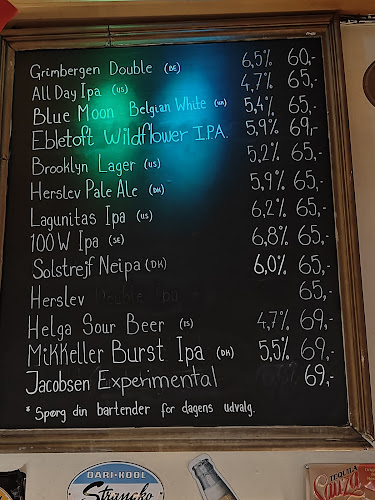 Grimbergen Double (BE) 6,5% 60,-
All Day Ipa (US) 4,7% 65,-
Blue Moon Belgian White (US) 5,4% 65,-
Ebletoft Wildflower I.P.A. 5,9% 69,-
Brooklyn Lager (US) 5,2% 65,-
Herslev Pale Ale (DK) 5,9% 65,-
Lagunitas Ipa (US) 6,2% 65,-
100 W Ipa (SE) 6,8% 65,-
Solstrejf Neipa (DK) 6,0% 65,-
Herslev Double Ipa 65,-
Helga Sour Beer (IS) 4,7% 69,-
Mikkeller Burst Ipa (DK) 5,5% 69,-
Jacobsen Experimental 69,-
* Spørg din bartender for dagens udvalg.
DARI-KOOL
TEQUILA
Sauza